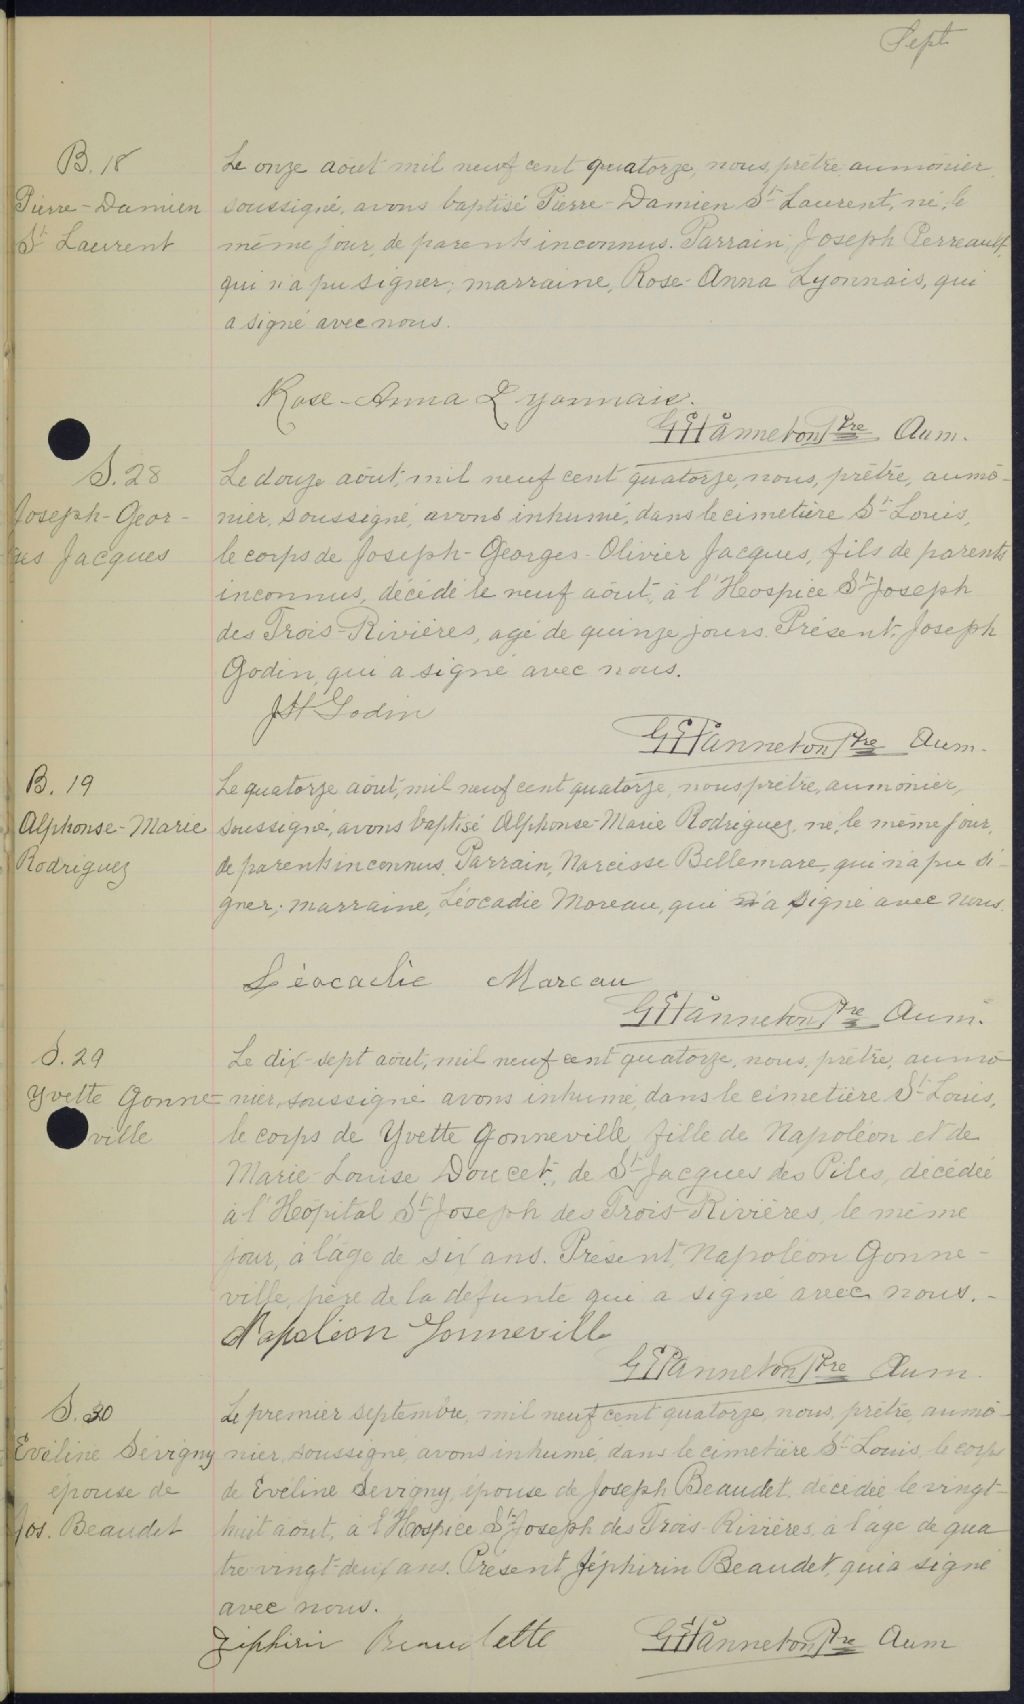 Sept
B. 18
Pierre-Damien
St Laurent
Le onze août mil neuf cent quatorze, nous, prêtre aumônier,
soussigné, avons baptisé Pierre-Damien St Laurent, né, le
même jour, de parents inconnus. Parrain, Joseph Perreault,
qui n'a pu signer; marraine, Rose-Anna Lyonnais, qui
a signé avec nous.
Rose-Anna Lyonnais.
G E Panneton Ptre Aum.
S. 28
Joseph-Geor-
ges Jacques
Le douze août, mil neuf cent quatorze, nous, prêtre, aumô-
nier, soussigné, avons inhumé, dans le cimetière St Louis,
le corps de Joseph-Georges-Olivier Jacques, fils de parents
inconnus, décédé le neuf août, à l'Hospice St Joseph
des Trois-Rivières, agé de quinze jours. Présent, Joseph
Godin, qui a signé avec nous.
JH Godin
G E Panneton Ptre Aum.
B. 19
Alphonse-Marie
Rodriguez
Le quatorze août, mil neuf cent quatorze, nous prêtre, aumônier,
soussigné, avons baptisé Alphonse-Marie Rodriguez, né, le même jour,
de parents inconnus. Parrain, Narcisse Bellemare, qui n'a pu si-
gner; marraine, Léocadie Moreau, qui a signé avec nous.
Léocadie Moreau
G E Panneton Ptre Aum.
S. 29
Yvette Gonne-
ville
Le dix-sept août, mil neuf cent quatorze, nous, prêtre, aumô-
nier, soussigné avons inhumé, dans le cimetière St Louis,
le corps de Yvette Gonneville, fille de Napoléon et de
Marie-Louise Doucet, de St Jacques des Piles, décédée
à l'Hôpital St Joseph des Trois-Rivières, le même
jour, à l'âge de six ans. Présent, Napoléon Gonne-
ville, père de la défunte qui a signé avec nous.-
Napoléon Gonneville
G E Panneton Ptre Aum.
S. 30
Evéline Sévigny
épouse de
Jos. Beaudet
Le premier septembre, mil neuf cent quatorze, nous, prêtre, aumô-
nier, soussigné, avons inhumé, dans le cimetière St Louis, le corps
de Evéline Sevigny, épouse de Joseph Beaudet, décédée le vingt-
huit août, à l'Hospice St Joseph des Trois-Rivières, à l'âge de qua
tre-vingt-deux ans. Présent, Zéphirin Beaudet, qui a signé
avec nous.
Zéphirin Beaudette
G E Panneton Ptre Aum